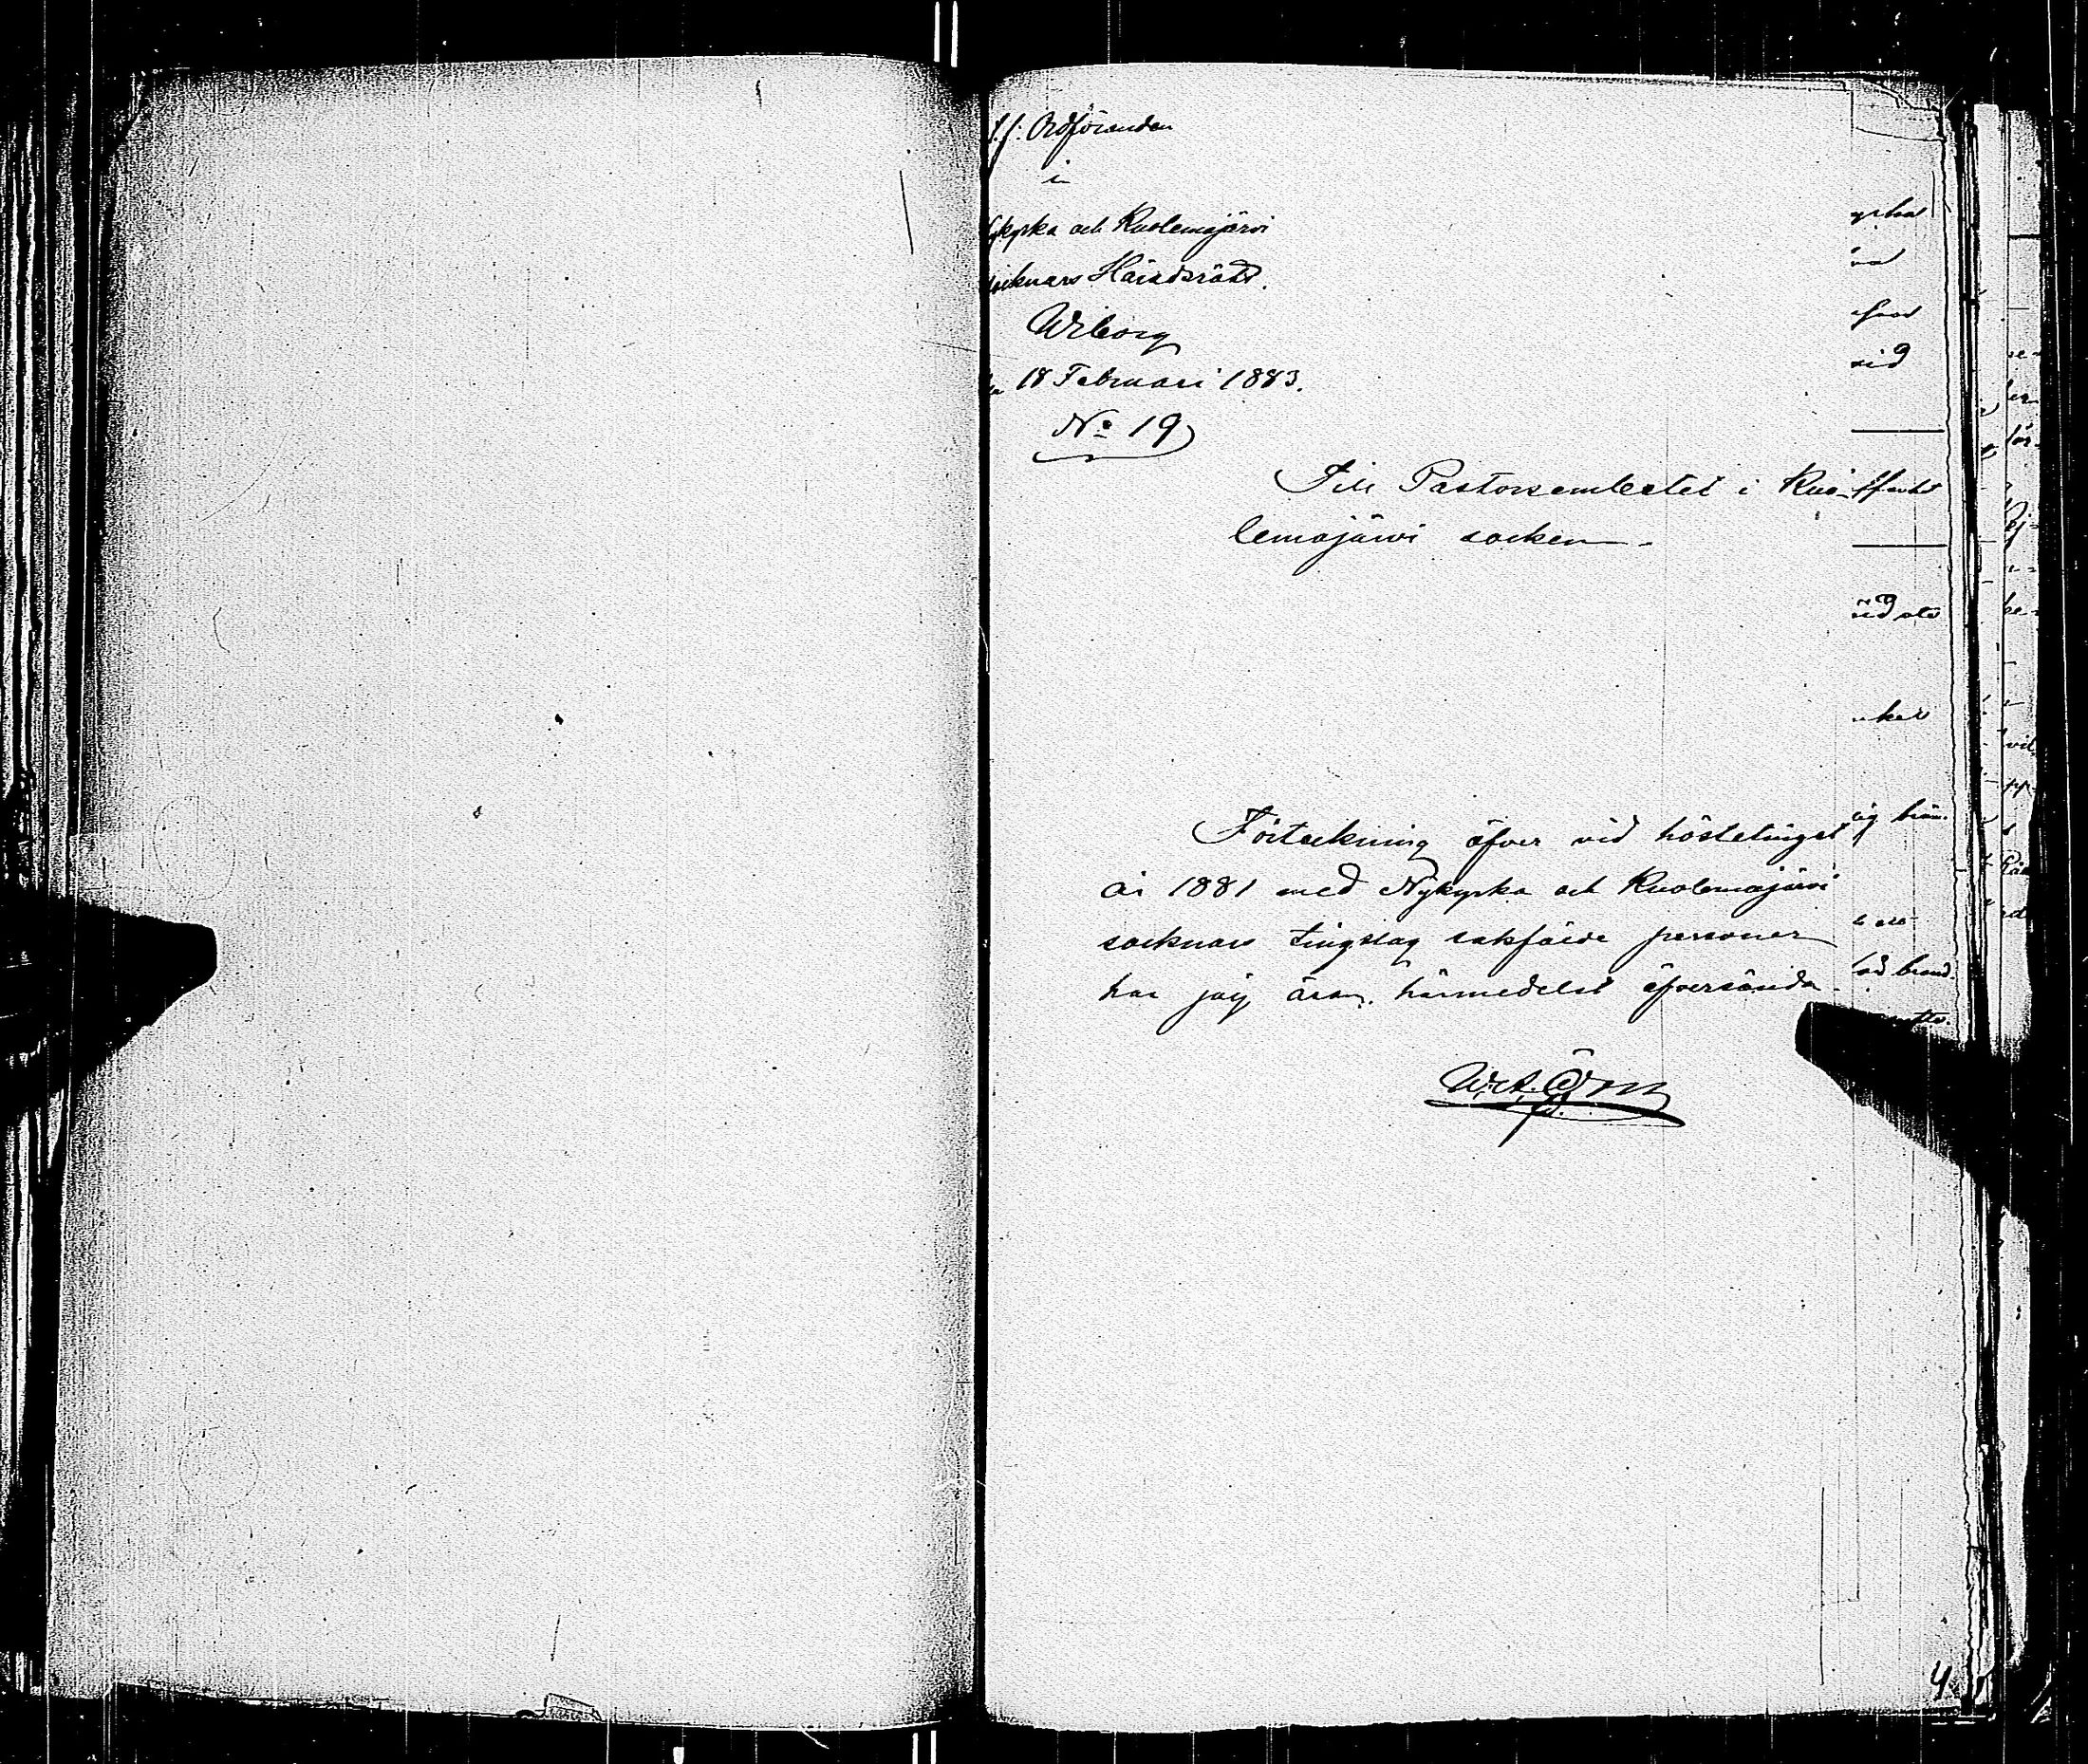 f.f. Ordföranden
i
Nykyrka och Kuolemajärvi
socknars Häradsrätt.
Wiborg
den 18 Februari 1883.
No 19
Till Pastorsembetet i Kuo-
lemajärvi socken.
Förteckning öfver vid höstetinget
år 1881 med Nykyrka och Kuolemajärvi
socknars tingslag sakfälde personer
har jag äran härmedelst öfversända.
4